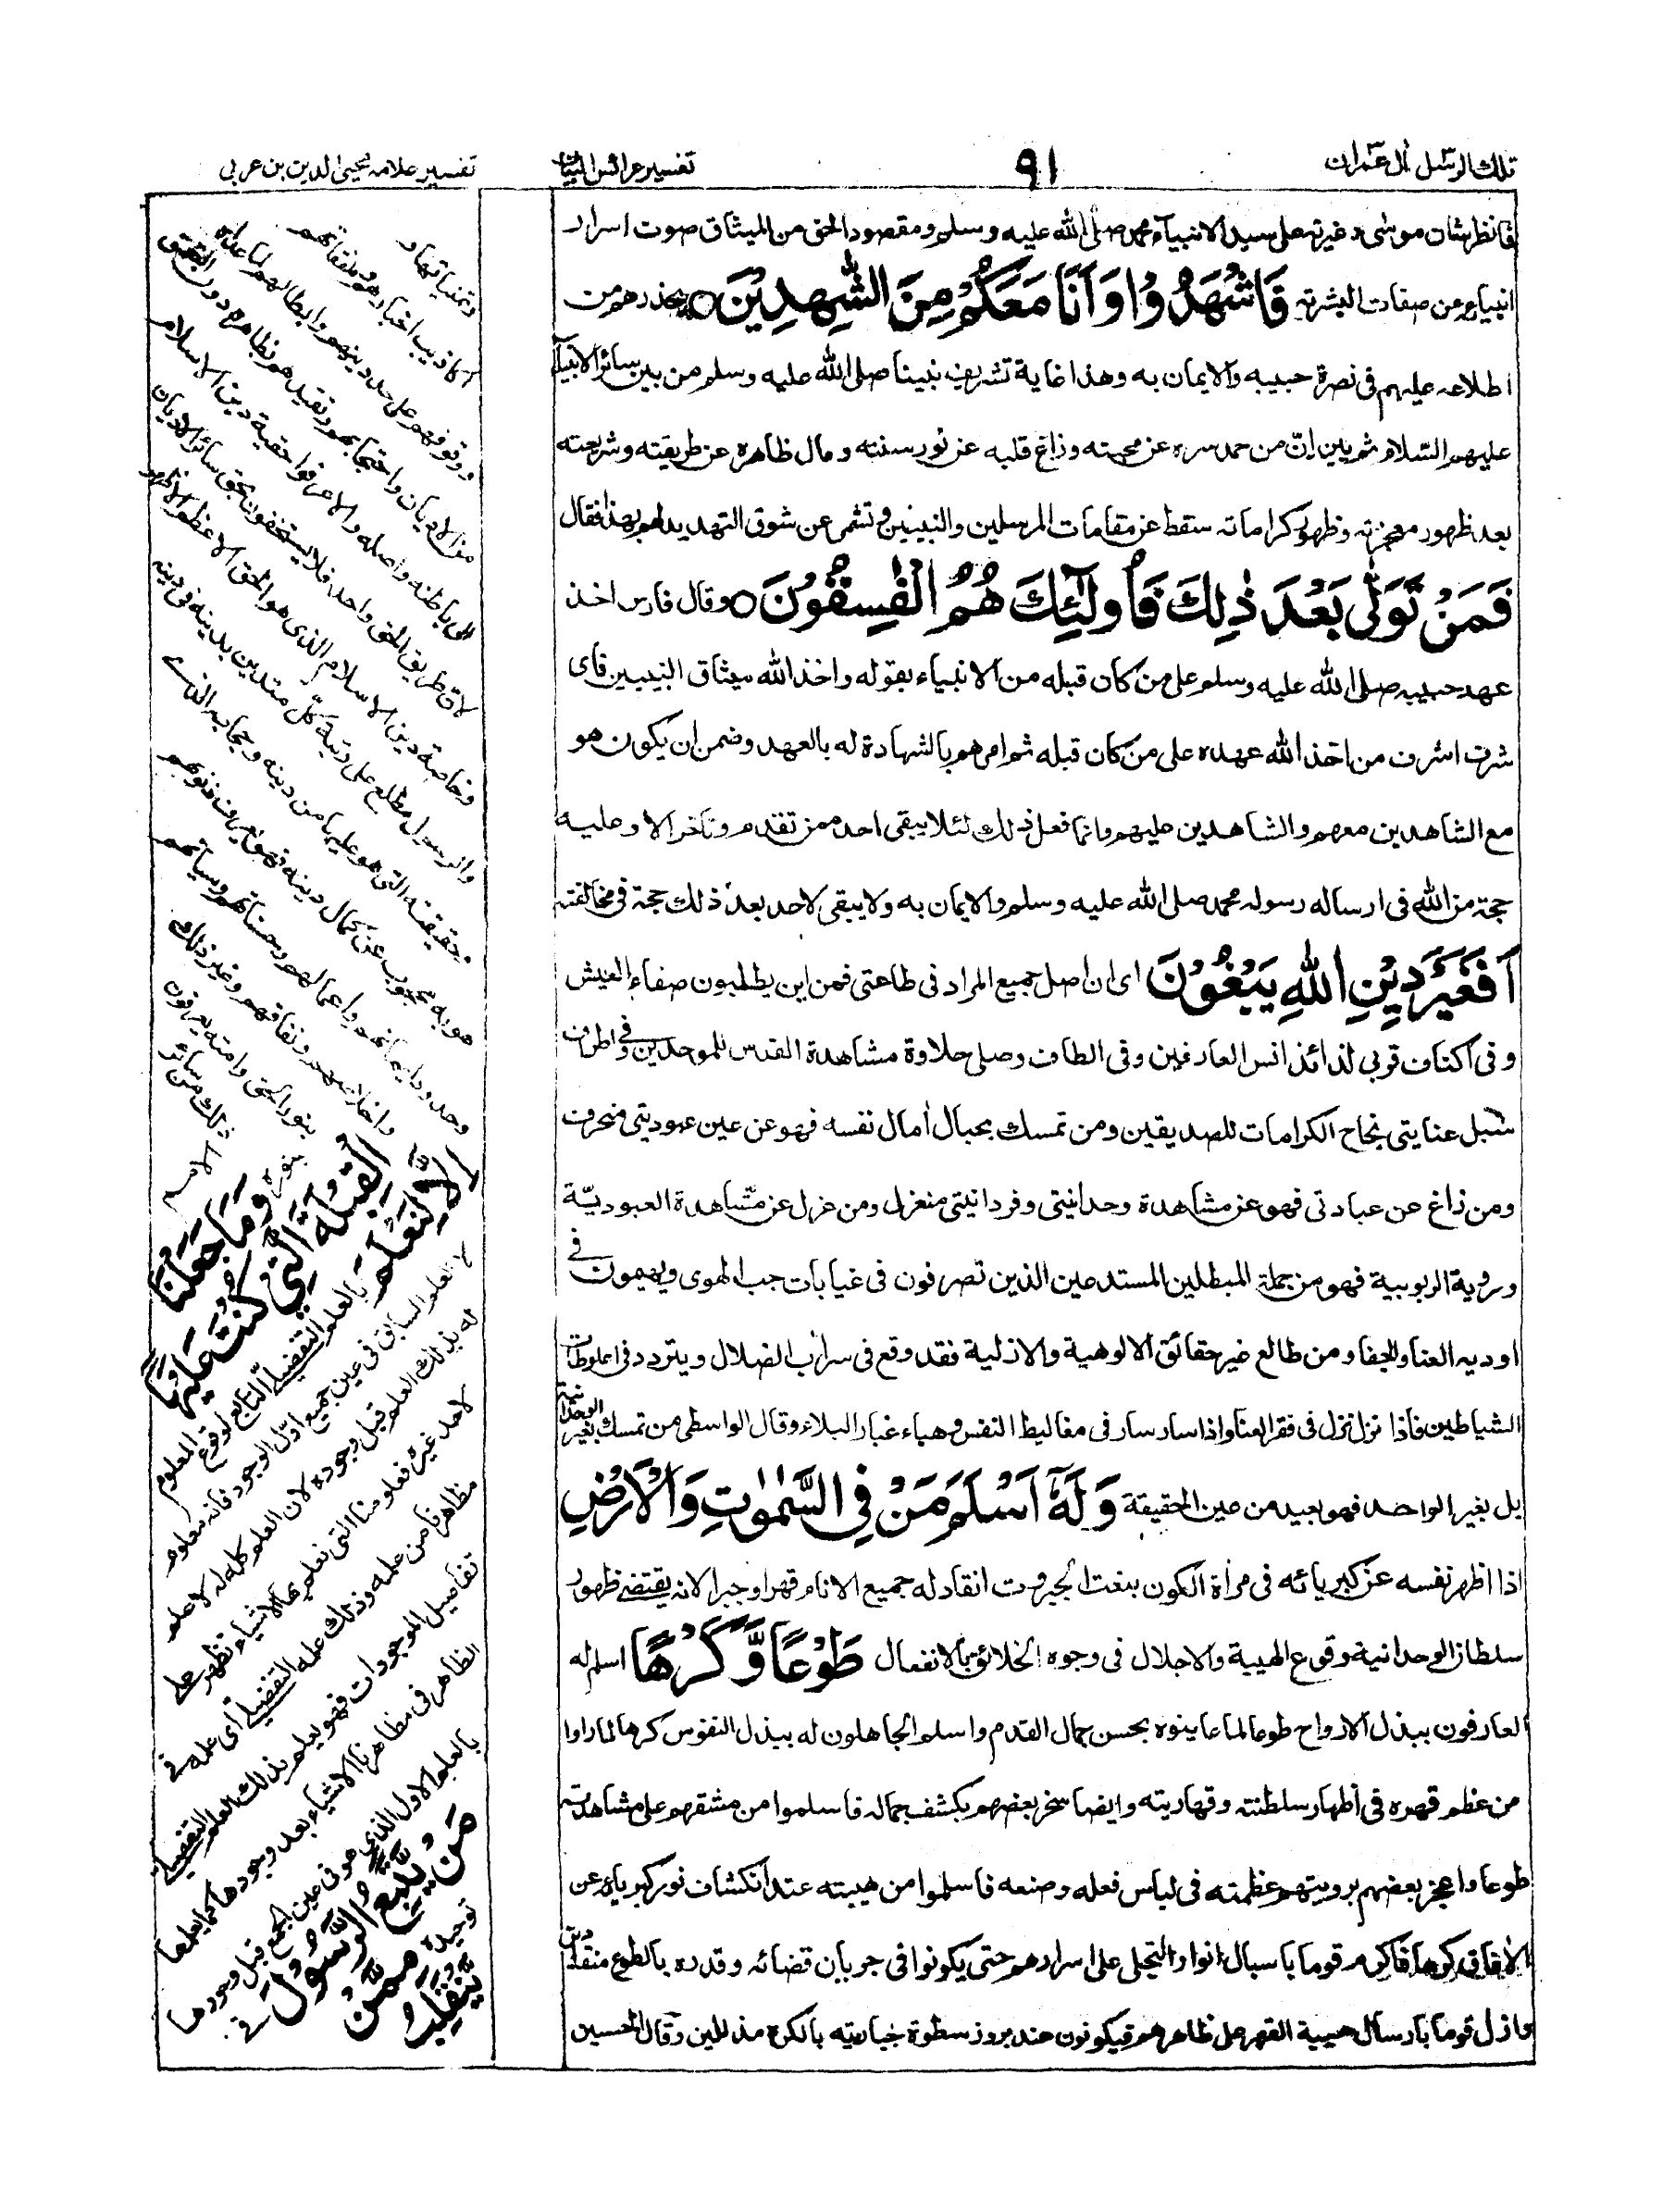 تلك الرسل اٰل عمران
٩١
تفسير عرائس البيان
تفسير علامه محيى الدين بن عربى
فانظر شان موسٰى وغيرته على سيد الانبيآء محمد صلى الله عليه وسلم ومقصود الحق من الميثاق صوت اسرار
انبياءه عن صفات البشرية فَاشْهَدُوْا وَاَنَا مَعَكُمْ مِنَ الشّٰهِدِيْنَ ○ يحذرهم من
اطلاعه عليهم فى نصرة حبيبه والايمان به وهذا غاية تشريف نبينا صلى الله عليه وسلم من بين سائر الانبيآء
عليهم السّلام ثم بين انّ من حمد سره عن محبته وزاغ قلبه عن نور سنته ومال ظاهره عن طريقته وشريعته
بعد ظهور معجزته وظهور كراماته سقط عن مقامات المرسلين والنبيين و عن شوق التهديد لهم بهذا فقال
فَمَنْ تَوَلّٰى بَعْدَ ذٰلِكَ فَاُولٰٓئِكَ هُمُ الْفٰسِقُوْنَ ○ وقال فارس اخذ
عهد حبيبه صلى الله عليه وسلم على من كان قبله من الانبياء بقوله واخذ الله ميثاق النبيين فاى
شرف اشرف من اخذ الله عهده على من كان قبله ثم امرهم بالشهادة له بالعهد وضمن ان يكون هو
مع الشاهدين معهم والشاهدين عليهم وانما فعل ذلك لئلا يبقى احد ممن تقدم وتاخر الا وعليه
حجة من الله فى ارساله رسوله محمد صلى الله عليه وسلم والايمان به ولا يبقى لاحد بعد ذلك حجة فى مخالفته
اَفَغَيْرَ دِيْنِ اللهِ يَبْغُوْنَ اى ان اصل جميع المراد فى طاعتى فمن اين يطلبون صفاء العيش
وفى اكناف قربى لذائذ انس العارفين وفى الطاف وصلى حلاوة مشاهدة القدس للموحدين وفى اطراف
سُبل عنايتى نجاح الكرامات للصديقين ومن تمسك بحبال اٰمال نفسه فهو عن عين عبوديتى منحرف
ومن زاغ عن عبادتى فهو عن مشاهدة وحدانيتى وفردانيتى منعزل ومن عزل عن مشاهدة العبوديّة
وروية الربوبية فهو من جملة المبطلين المستدعين الذين تصرفون فى غيابات جب الهوى ويهيمون فى
اوديه العنا والجفا ومن طالع غير حقائق الالوهية والازلية فقد وقع فى سراب الضلال ويتردد فى اغلوطات
الشياطين فاذا نزل نزل فى فقر العنا واذا سار سار فى مغاليط النفس وهباء غبار البلاء وقال الواسطى من تمسك بغير الوحدانية
بل بغير الواحد فهو بعيد من عين الحقيقة وَلَهٗٓ اَسْلَمَ مَنْ فِى السَّمٰوٰتِ وَالْاَرْضِ
اذا اظهر نفسه عن كبريائه فى مراٰة الكون بنعت الجبروت انقاد له جميع الانام قهرا وجبرا لانه يقتضى ظهور
سلطان الوحدانية وقوع الهيبة والاجلال فى وجوه الخلائق بالانفعال طَوْعًا وَّكَرْهًا اسلم له
العارفون ببذل الارواح طوعا لما عاينوه بحسن جمال القدم واسلم الجاهلون له ببذل النفوس كرها لما راوا
من عظم قهره فى اظهار سلطنته وقهاريته وايضا سخر بعضهم بكشف جماله فاسلموا من مشقهم على مشاهدته
طوعا واعجز بعضهم برويتهم عظمته فى لباس فعله وصنعه فاسلموا من هيبته عند انكشاف نور كبرياءه عن
الاٰفاق كرها فاكرم قوما باسبال انوار التجلى على اسرارهم حتى يكونوا فى جريان قضائه وقدره بالطوع منقادين
واذل قوما بارسال هيبة القهر على ظاهرهم فيكونون عند بروز سطوة جباريته بالكره مذللين وقال الحسين
وتمنياتهم و
اكاذيب اخبارهم ومنفقاتهم
ووقوفهم على حد دينهم وابطالهم لما عداه
من الاديان واحتجابهم وتقيدهم بظاهره دون التعمق
الى باطنه واصله والا عرفوا حقية دين الاسلام
لان طريق الحق واحد فلا يستخفون بحق سائر الاديان
وخاصة دين الاسلام الذى هو الحق الاعظم الاظهر
والرسول مطلع على رتبة كل متدين بدينه فى دينه
وحقيقته التى هو عليها من دينه وحجابه الذى
هو به محجوب عن كمال دينه فهو يعرف ذنوبهم
وحدود ايمانهم واعمالهم وحسناتهم وسياتهم
واخلاصهم ونفاقهم وغير ذلك
بنور الحق وامته يعرفون
ذلك من سائر
الامم
بنوره وَمَا جَعَلْنَا
الْقِبْلَةَ الَّتِىْ كُنْتَ عَلَيْهَآ
اِلَّا لِنَعْلَمَ بالعلم التفصيلى التابع لوقوع المعلوم
لا العلم السابق فى عين جميع اول الوجود فانه معلوم
له بذلك العلم قبل وجوده لان العلم كله له لا علم
لاحد غيره فعلومنا التى نعلم بها الاشياء تظهر على
مظاهرنا من علمه وذلك علمه التفصيلى اى علمه فى
تفاصيل الموجودات فهو يعلم بذلك العلم التفصيلى
الظاهر فى مظاهرنا الاشياء بعد وجودها كما يعلمها
بالعلم الاول الذى هو فى عين الجمع قبل وجودها
مَنْ يَّتَّبِعُ الرَّسُوْلَ فى
توحيده مِمَّنْ
يَّنْقَلِبُ